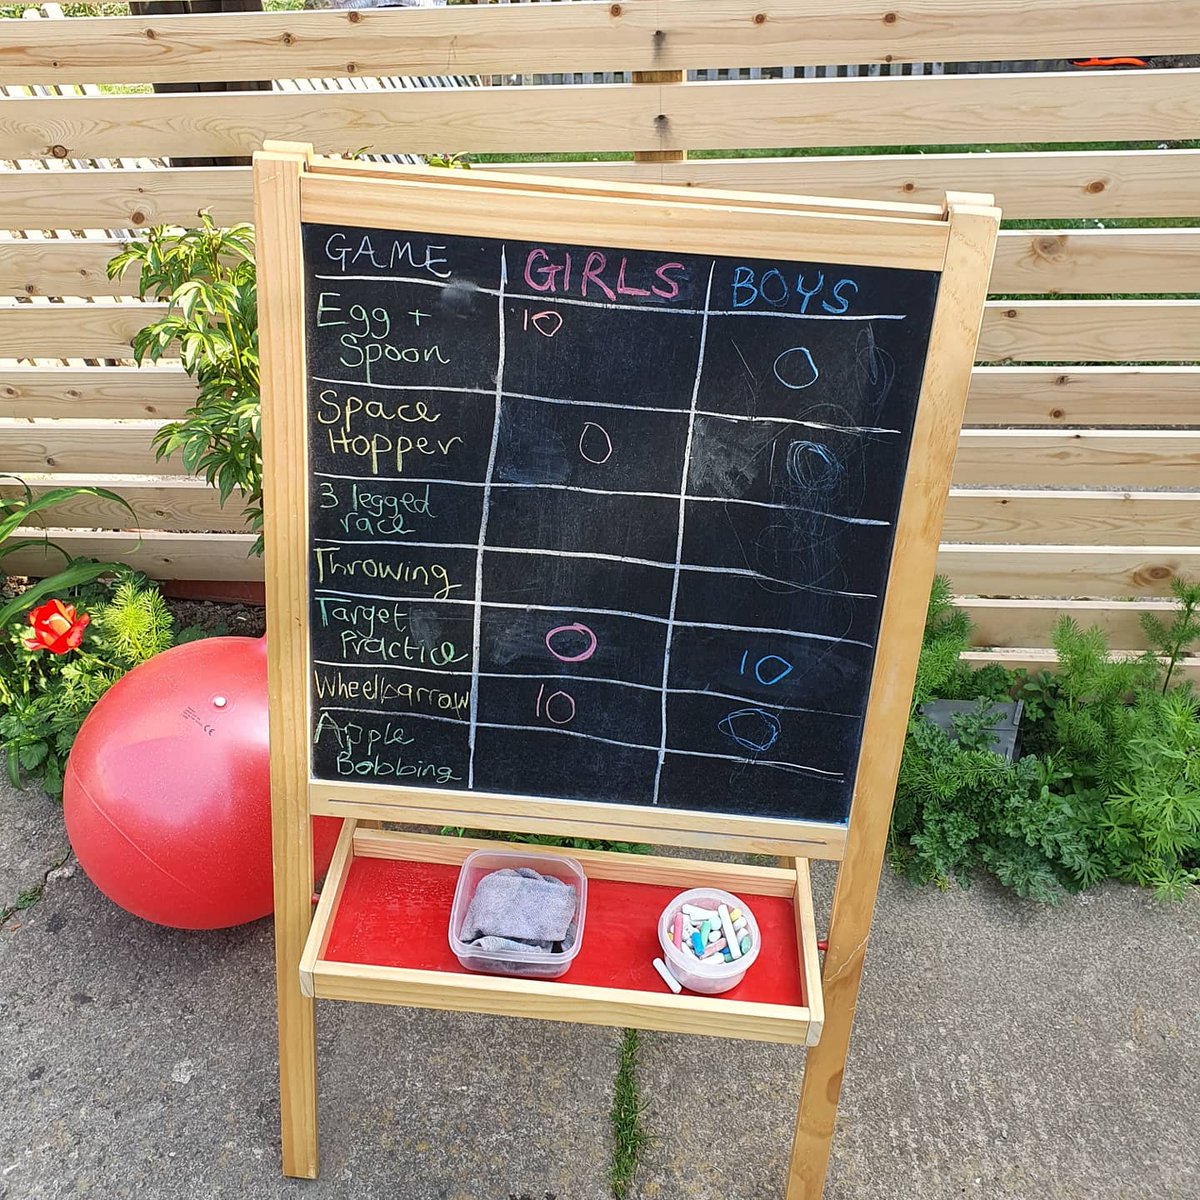 GAME GIRLS BOYS
Egg + 10
Spoon O
Space
Hopper O 10
3 legged
race
Throwing
Target
Practice O 10
Wheelbarrow 10 O
Apple
Bobbing